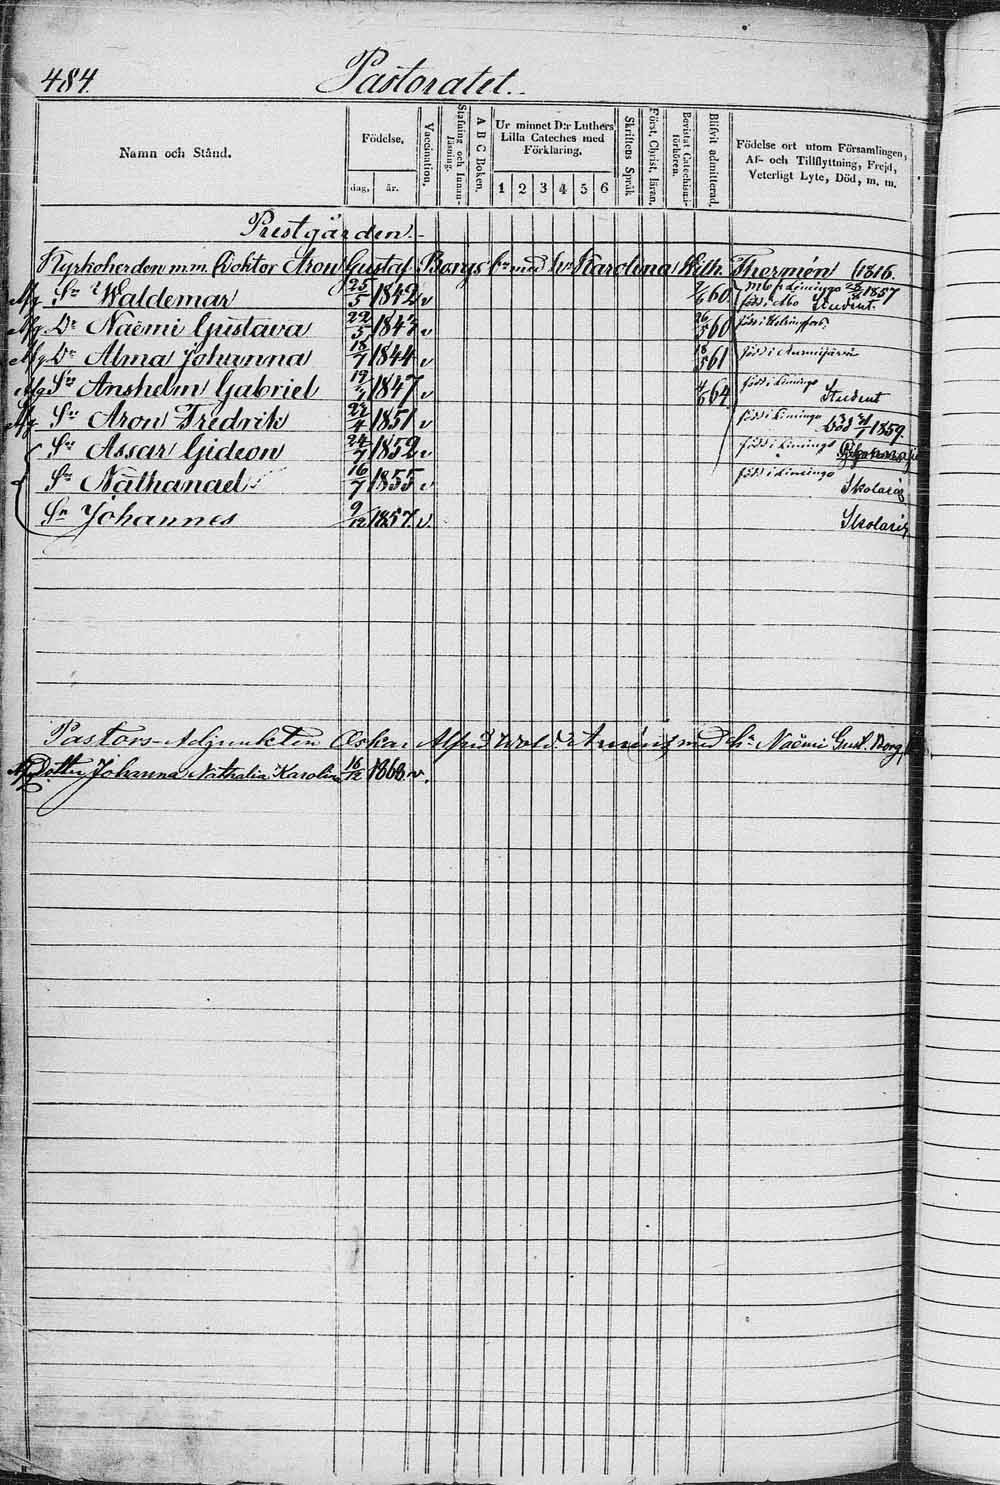 484.
Pastoratet.
Namn och Stånd.
Födelse.
dag, år.
Vaccination.
Stafning och Innan-läsning.
A B C Boken.
Ur minnet D:r Luthers Lilla Cateches med Förklaring.
1 2 3 4 5 6
Skriftens Språk
Först. Christ. läran.
Bevistat Catechismi-förhören.
Blifvit admitterad.
Födelse ort utom Församlingen, Af- och Tillflyttning, Frejd, Veterligt Lyte, Död, m. m.
Prestgården.
Kyrkoherden m.m. Doktor Aron Gustaf Borg med Karolina Wilh. Thermén 1816.
Sn Waldemar 25/5 1842 v 60 1857 Student.
Dr Naëmi Gustava 22/5 1843 v 60 född i Helsingfors.
Dr Alma Johanna 18/7 1844 v 61 född i
Sn Anshelm Gabriel 1847 v 64 född i Limingo Student
Sn Aron Fredrik 22/4 1851 v född i Limingo 1859.
Sn Assar Gideon 24/7 1852 v född i Limingo
Sn Nathanael 16/7 1855 v född i Limingo Skolaris
Sn Johannes 9/12 1857. v. Skolaris
Pastors-Adjunkten Oskar Alfred med Naëmi Gust. Borg
Dotter Johanna Nathalia Karolina 16/12 1868 v.